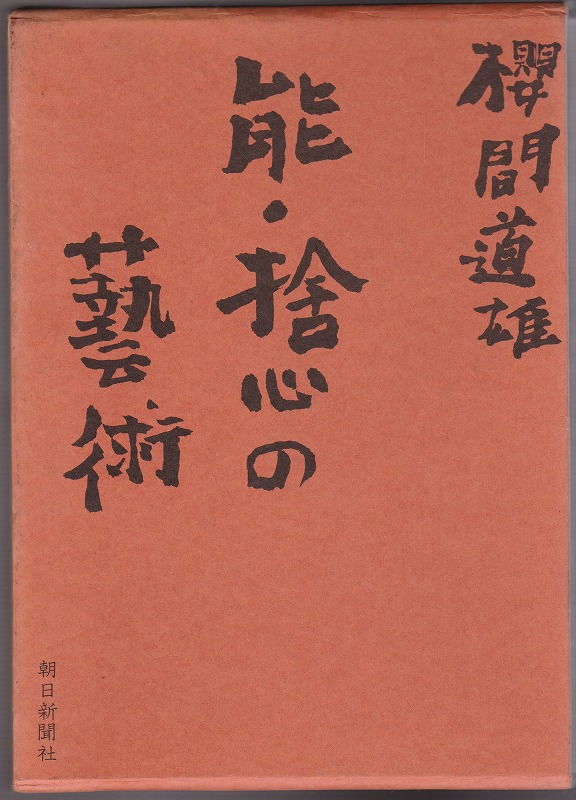 櫻間道雄
能・捨心の
藝術
朝日新聞社